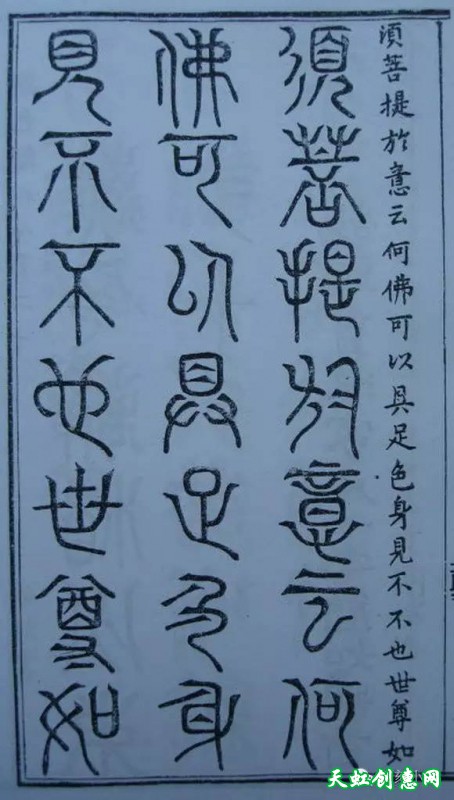 須菩提於意云何佛可以具足色身見不不也世尊如
須菩提於意云何
佛可以具足色身
見不不也世尊如
天虹创意网